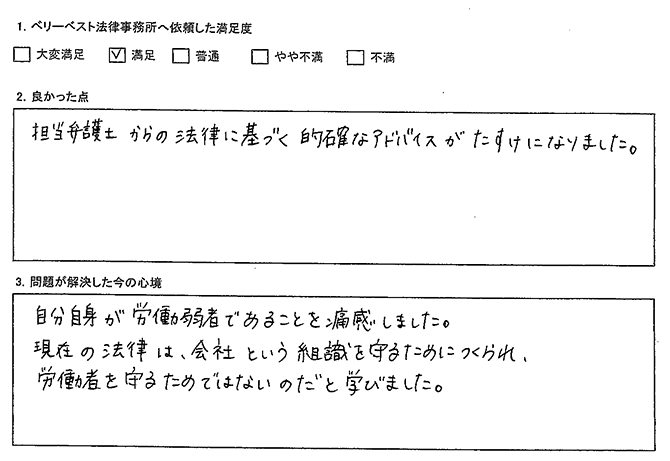 1. ベリーベスト法律事務所へ依頼した満足度
□ 大変満足 ☑ 満足 □ 普通 □ やや不満 □ 不満
2. 良かった点
担当弁護士からの法律に基づく的確なアドバイスがたすけになりました。
3. 問題が解決した今の心境
自分自身が労働弱者であることを痛感しました。
現在の法律は、会社という組織を守るためにつくられ、
労働者を守るためではないのだと学びました。